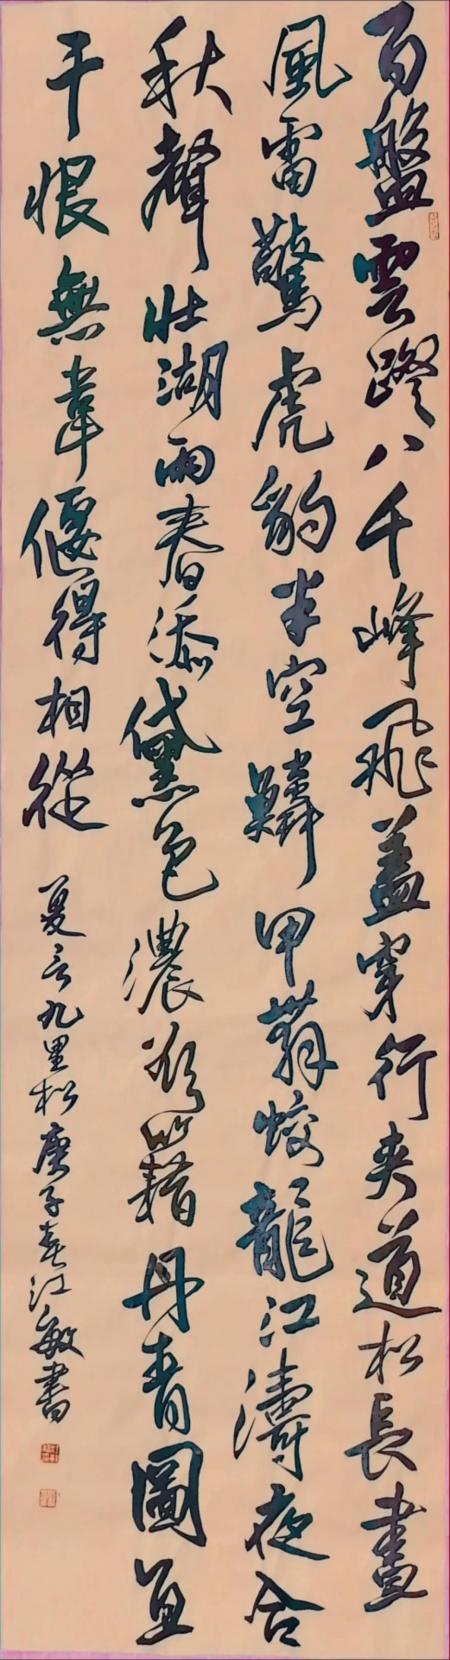 百盤雲蹬八千峰飛蓋穿行夾道松長晝
風雷驚虎豹半空鱗甲舞蛟龍江濤夜合
秋聲壯湖雨春添黛色濃欲籍丹青圖直
干恨無韋偃得相從
夏言九里松庚子春江敏書